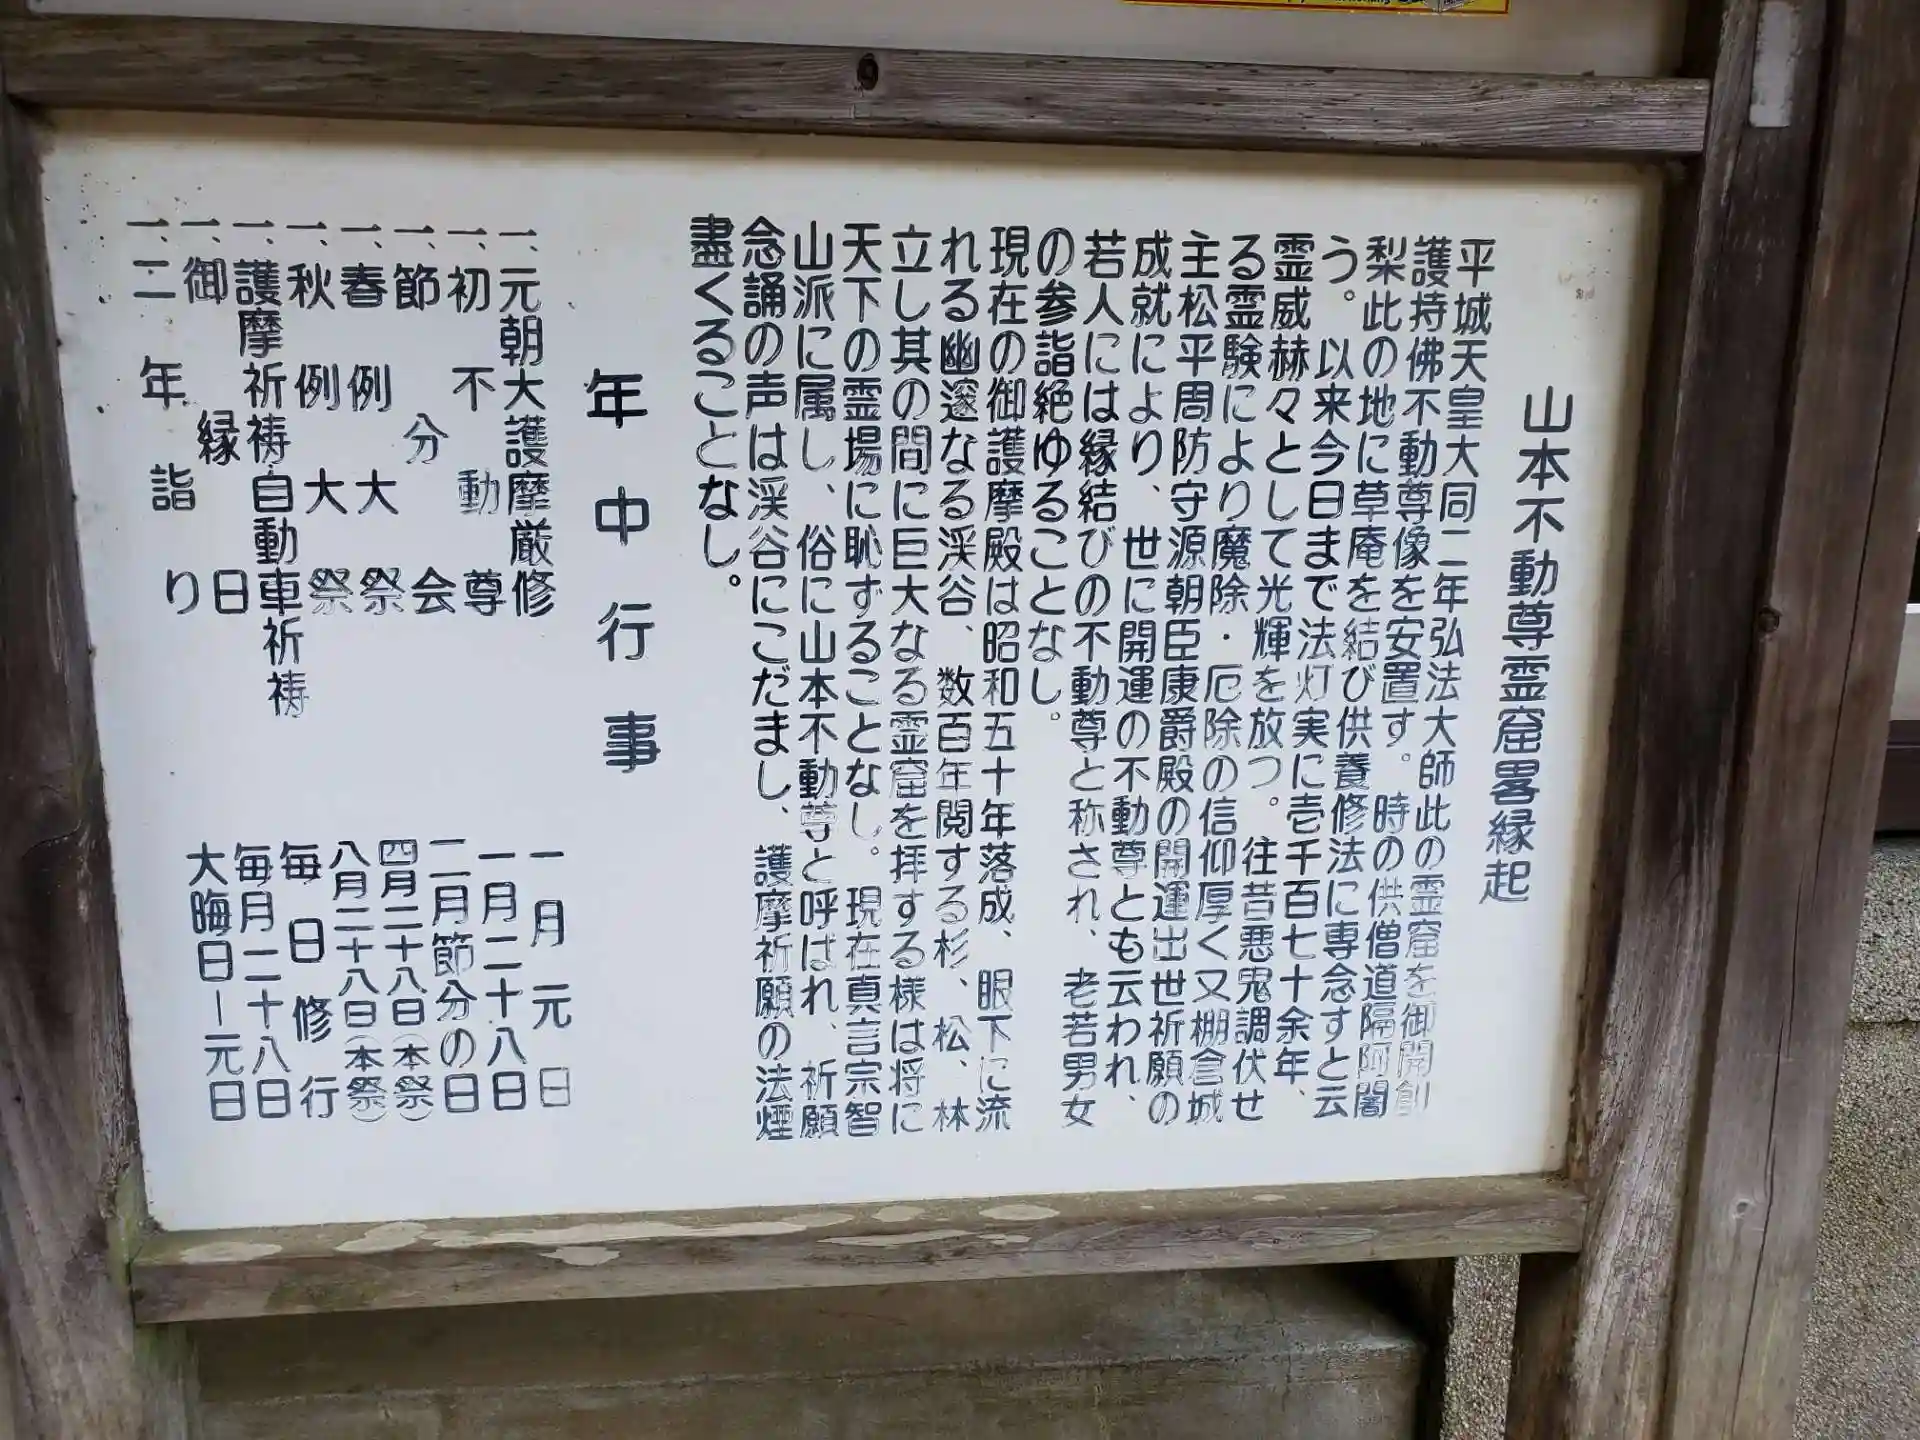 山本不動尊霊窟畧縁起
平城天皇大同二年弘法大師此の霊窟を御開創
護持佛不動尊像を安置す。時の供僧道隔阿闍
梨此の地に草庵を結び供養修法に専念すと云
う。以来今日まで法灯実に壱千百七十余年、
霊威赫々として光輝を放つ。往昔悪鬼調伏せ
る霊験により魔除・厄除の信仰厚く又棚倉城
主松平周防守源朝臣康爵殿の開運出世祈願の
成就により、世に開運の不動尊とも云われ、
若人には縁結びの不動尊と称され、老若男女
の参詣絶ゆることなし。
現在の御護摩殿は昭和五十年落成、眼下に流
れる幽邃なる渓谷、数百年閲する杉、松、林
立し其の間に巨大なる霊窟を拝する様は将に
天下の霊場に恥ずることなし。現在真言宗智
山派に属し、俗に山本不動尊と呼ばれ、祈願
念誦の声は渓谷にこだまし、護摩祈願の法煙
盡くることなし。
年中行事
一、元朝大護摩厳修 一月元日
一、初不動尊 一月二十八日
一、節分会 二月節分の日
一、春例大祭 四月二十八日(本祭)
一、秋例大祭 八月二十八日(本祭)
一、護摩祈祷・自動車祈祷 毎日修行
一、御縁日 毎月二十八日
一、二年詣り 大晦日ー元日